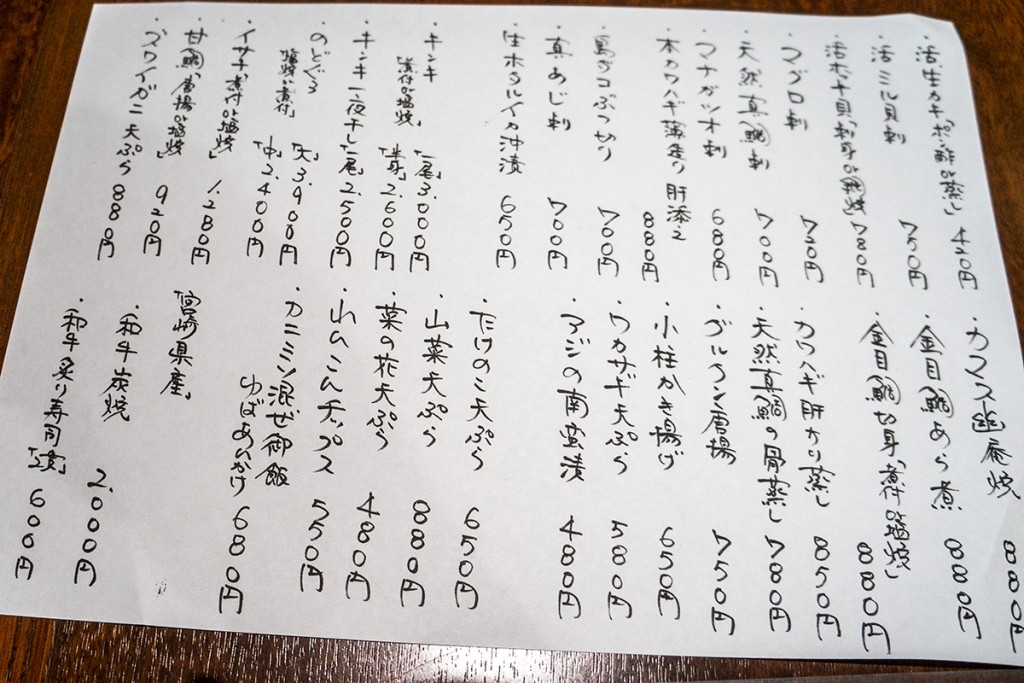 ・活生カキ「ポン酢or蒸し」 420円
・活ミル貝刺 750円
・活ホタテ貝「刺身or焼」 780円
・マグロ刺 720円
・天然真鯛刺 700円
・マナガツオ刺 680円
・本カワハギ薄造り 肝添え 880円
・真ダコぶつ切り 700円
・真あじ刺 700円
・生ホタルイカ沖漬 650円
・キンキ
「煮付or塩焼」
「一尾」3.000円
「半身」2.600円
・キンキ一夜干し「一尾」2.500円
・のどぐろ
「塩焼or煮付」
「大」3.900円
「中」2.400円
・イサキ「煮付or塩焼」 1.280円
・甘鯛「唐揚or塩焼」 920円
・ズワイガニ天ぷら 880円
・カマス幽庵焼 880円
・金目鯛あら煮 880円
・金目鯛切身「煮付or塩焼」 880円
・カワハギ肝かり蒸し 850円
・天然真鯛の骨蒸し 780円
・グルクン唐揚 750円
・小柱かき揚げ 650円
・ワカサギ天ぷら 580円
・アジの南蛮漬 480円
・たけのこ天ぷら 650円
・山菜天ぷら 880円
・菜の花天ぷら 480円
・れんこんチップス 550円
・カニミソ混ぜ御飯
ゆばあんかけ 680円
「宮崎県産」
・和牛炭焼 2.000円
・和牛炙り寿司「2貫」 600円